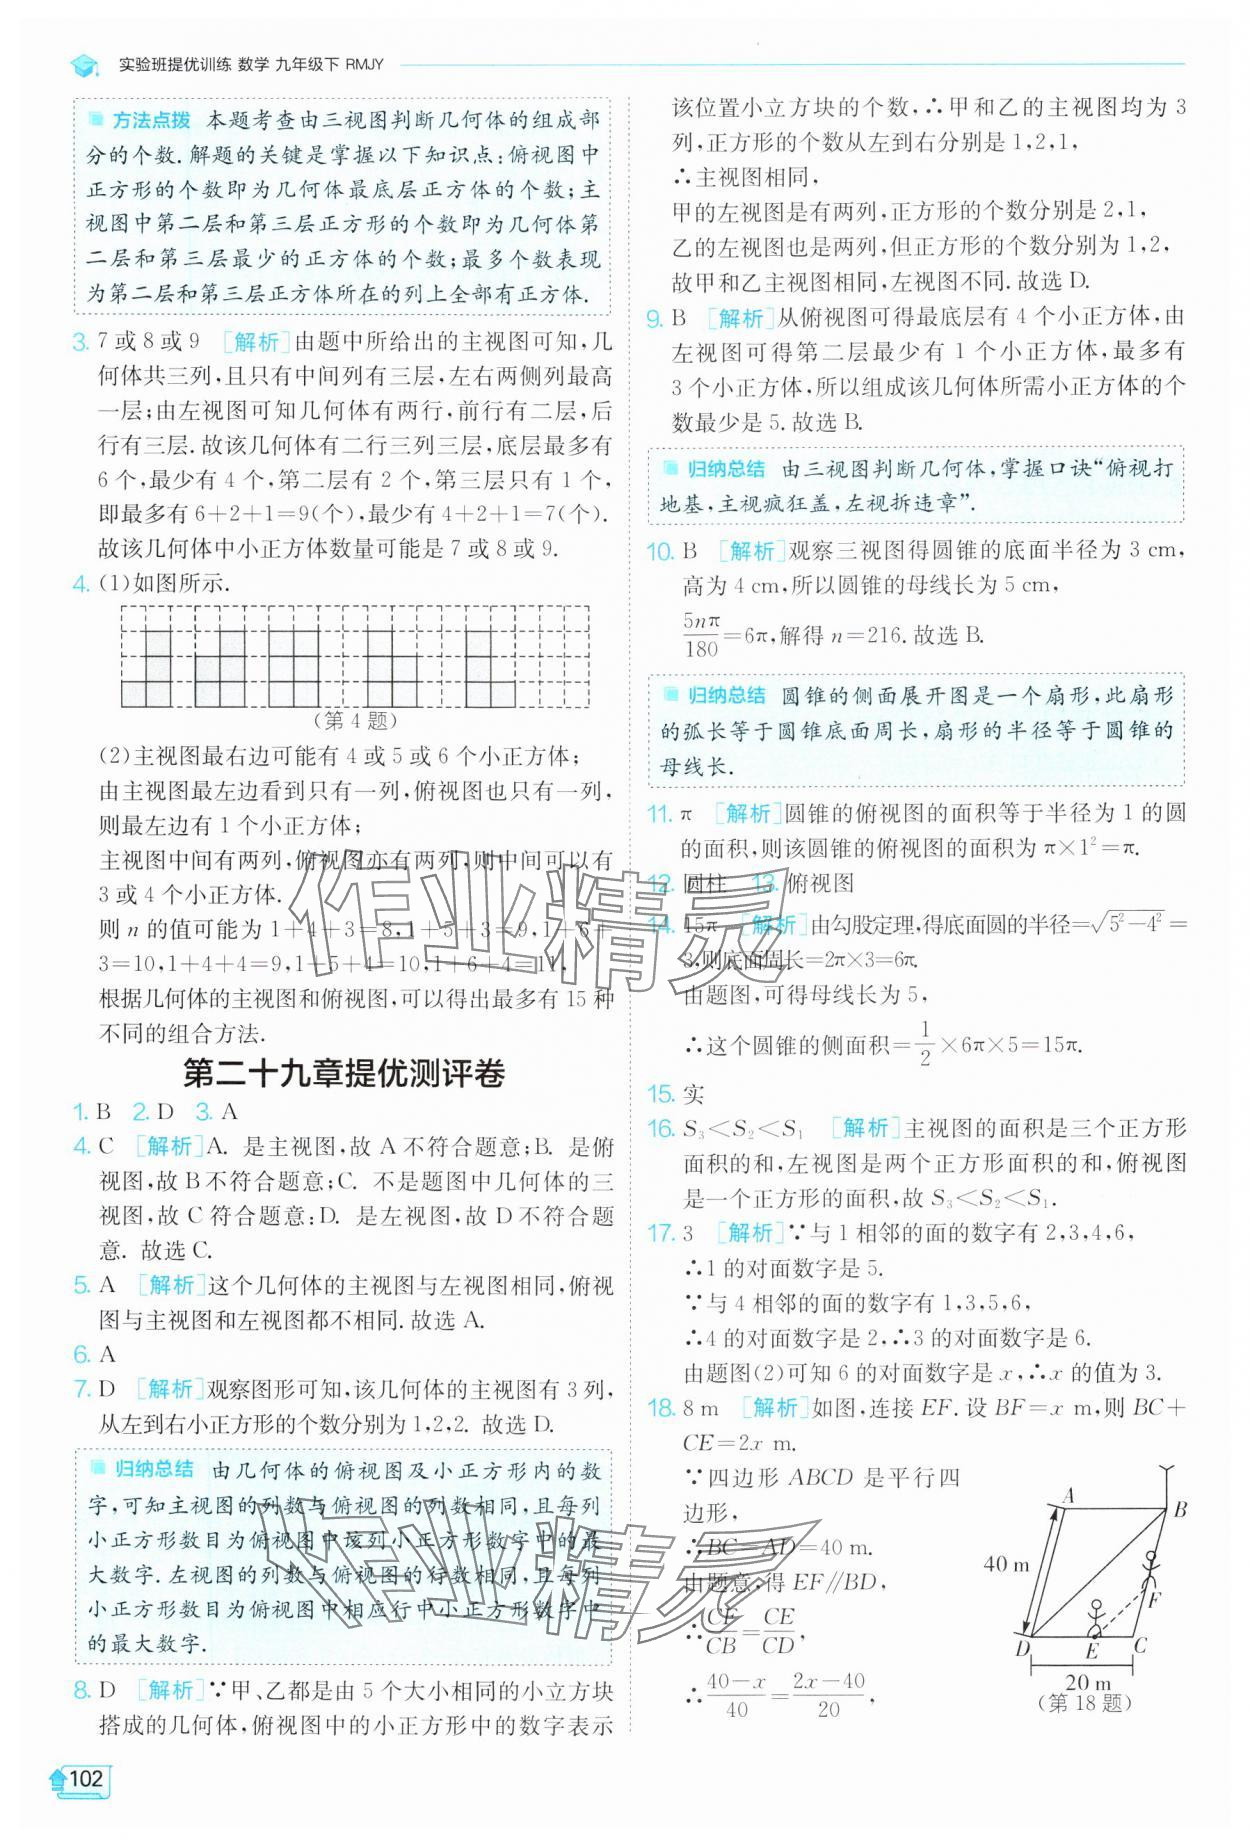 实验班提优训练 数学 九年级下 RMJY
方法点拨 本题考查由三视图判断几何体的组成部
分的个数.解题的关键是掌握以下知识点:俯视图中
正方形的个数即为几何体最底层正方体的个数;主
视图中第二层和第三层正方形的个数即为几何体第
二层和第三层最少的正方体的个数;最多个数表现
为第二层和第三层正方体所在的列上全部有正方体.
3. 7或8或9 [解析]由题中所给出的主视图可知,几
何体共三列,且只有中间列有三层,左右两侧列最高
一层;由左视图可知几何体有两行,前行有二层,后
行有三层.故该几何体有二行三列三层,底层最多有
6个,最少有4个,第二层有2个,第三层只有1个,
即最多有6+2+1=9(个),最少有4+2+1=7(个).
故该几何体中小正方体数量可能是7或8或9.
4. (1)如图所示.
(第4题)
(2)主视图最右边可能有4或5或6个小正方体;
由主视图最左边看到只有一列,俯视图也只有一列,
则最左边有1个小正方体;
主视图中间有两列,俯视图亦有两列,则中间可以有
3或4个小正方体.
则n的值可能为1+4+3=8,1+5+3=9,1+6+
3=10,1+4+4=9,1+5+4=10,1+6+4=11,
根据几何体的主视图和俯视图,可以得出最多有15种
不同的组合方法.
第二十九章提优测评卷
1. B 2. D 3. A
4. C [解析]A. 是主视图,故A不符合题意;B. 是俯
视图,故B不符合题意;C. 不是题图中几何体的三
视图,故C符合题意;D. 是左视图,故D不符合题
意. 故选C.
5. A [解析]这个几何体的主视图与左视图相同,俯视
图与主视图和左视图都不相同.故选A.
6. A
7. D [解析]观察图形可知,该几何体的主视图有3列,
从左到右小正方形的个数分别为1,2,2. 故选D.
归纳总结 由几何体的俯视图及小正方形内的数
字,可知主视图的列数与俯视图的列数相同,且每列
小正方形数目为俯视图中该列小正方形数字中的最
大数字.左视图的列数与俯视图的行数相同,且每列
小正方形数目为俯视图中相应行中小正方形数字中
的最大数字.
8. D [解析]∵甲、乙都是由5个大小相同的小立方块
搭成的几何体,俯视图中的小正方形中的数字表示
102
该位置小立方块的个数,∴甲和乙的主视图均为3
列,正方形的个数从左到右分别是1,2,1,
∴主视图相同,
甲的左视图是有两列,正方形的个数分别是2,1,
乙的左视图也是两列,但正方形的个数分别为1,2,
故甲和乙主视图相同,左视图不同.故选D.
9. B [解析]从俯视图可得最底层有4个小正方体,由
左视图可得第二层最少有1个小正方体,最多有
3个小正方体,所以组成该几何体所需小正方体的个
数最少是5.故选B.
归纳总结 由三视图判断几何体,掌握口诀“俯视打
地基,主视疯狂盖,左视拆违章”.
10. B [解析]观察三视图得圆锥的底面半径为3 cm,
高为4 cm,所以圆锥的母线长为5 cm,
5nπ/180=6π,解得n=216.故选B.
归纳总结 圆锥的侧面展开图是一个扇形,此扇形
的弧长等于圆锥底面周长,扇形的半径等于圆锥的
母线长.
11. π [解析]圆锥的俯视图的面积等于半径为1的圆
的面积,则该圆锥的俯视图的面积为π×1²=π.
12. 圆柱 13. 俯视图
14. 15π [解析]由勾股定理,得底面圆的半径=√(5²-4²)=
3,则底面周长=2π×3=6π.
由题图,可得母线长为5,
∴这个圆锥的侧面积=1/2×6π×5=15π.
15. 实
16. S₃<S₂<S₁ [解析]主视图的面积是三个正方形
面积的和,左视图是两个正方形面积的和,俯视图
是一个正方形的面积,故S₃<S₂<S₁.
17. 3 [解析]∵与1相邻的面的数字有2,3,4,6,
∴1的对面数字是5.
∵与4相邻的面的数字有1,3,5,6,
∴4的对面数字是2,∴3的对面数字是6.
由题图(2)可知6的对面数字是x,∴x的值为3.
18. 8 m [解析]如图,连接EF.设BF=x m,则BC+
CE=2x m.
∵四边形ABCD是平行四
边形,
∴BC=AD=40 m.
由题意,得EF∥BD,
∴CF/CB=CE/CD,
∴(40-x)/40=(2x-40)/20,
A
B
40 m
F
D
E
C
20 m
(第18题)
作业精灵
作业精灵